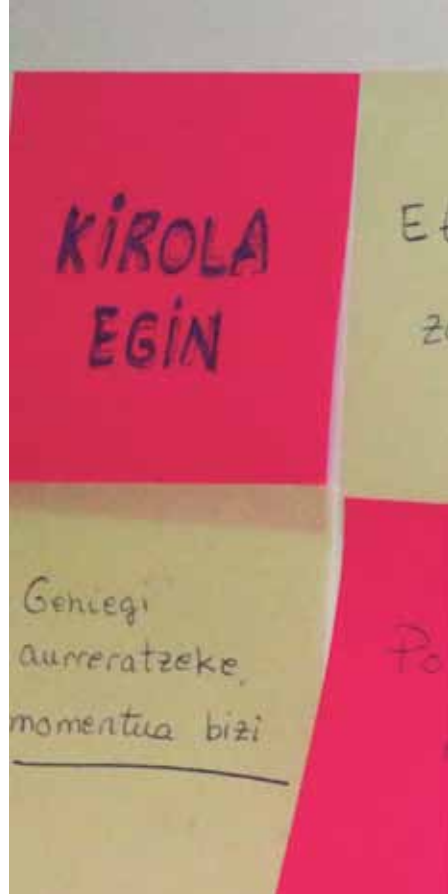 KIROLA
EGIN
Gehiegi
aurreratzeke,
momentua bizi